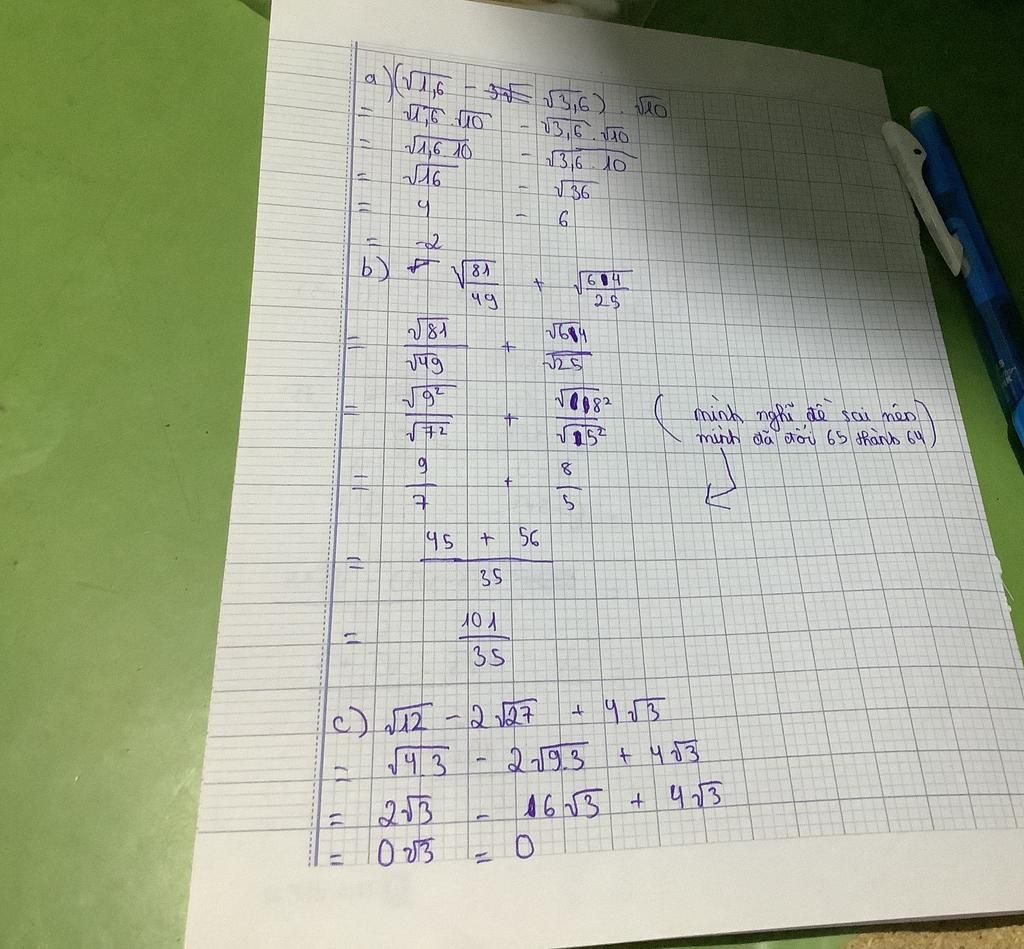 a) (√1,6 - 3√ √3,6) . √10
= √1,6 . √10 - √3,6 . √10
= √1,6 . 10 - √3,6 . 10
= √16 - √36
= 4 - 6
= -2
b) √81/49 + √64/25
= √81/√49 + √64/√25
= √9²/√7² + √8²/√5² (mình nghĩ đề sai nên
mình đã đổi 65 thành 64)
= 9/7 + 8/5
= 45 + 56/35
= 101/35
c) √12 - 2√27 + 4√3
= √4.3 - 2√9.3 + 4√3
= 2√3 - 6√3 + 4√3
= 0√3 = 0